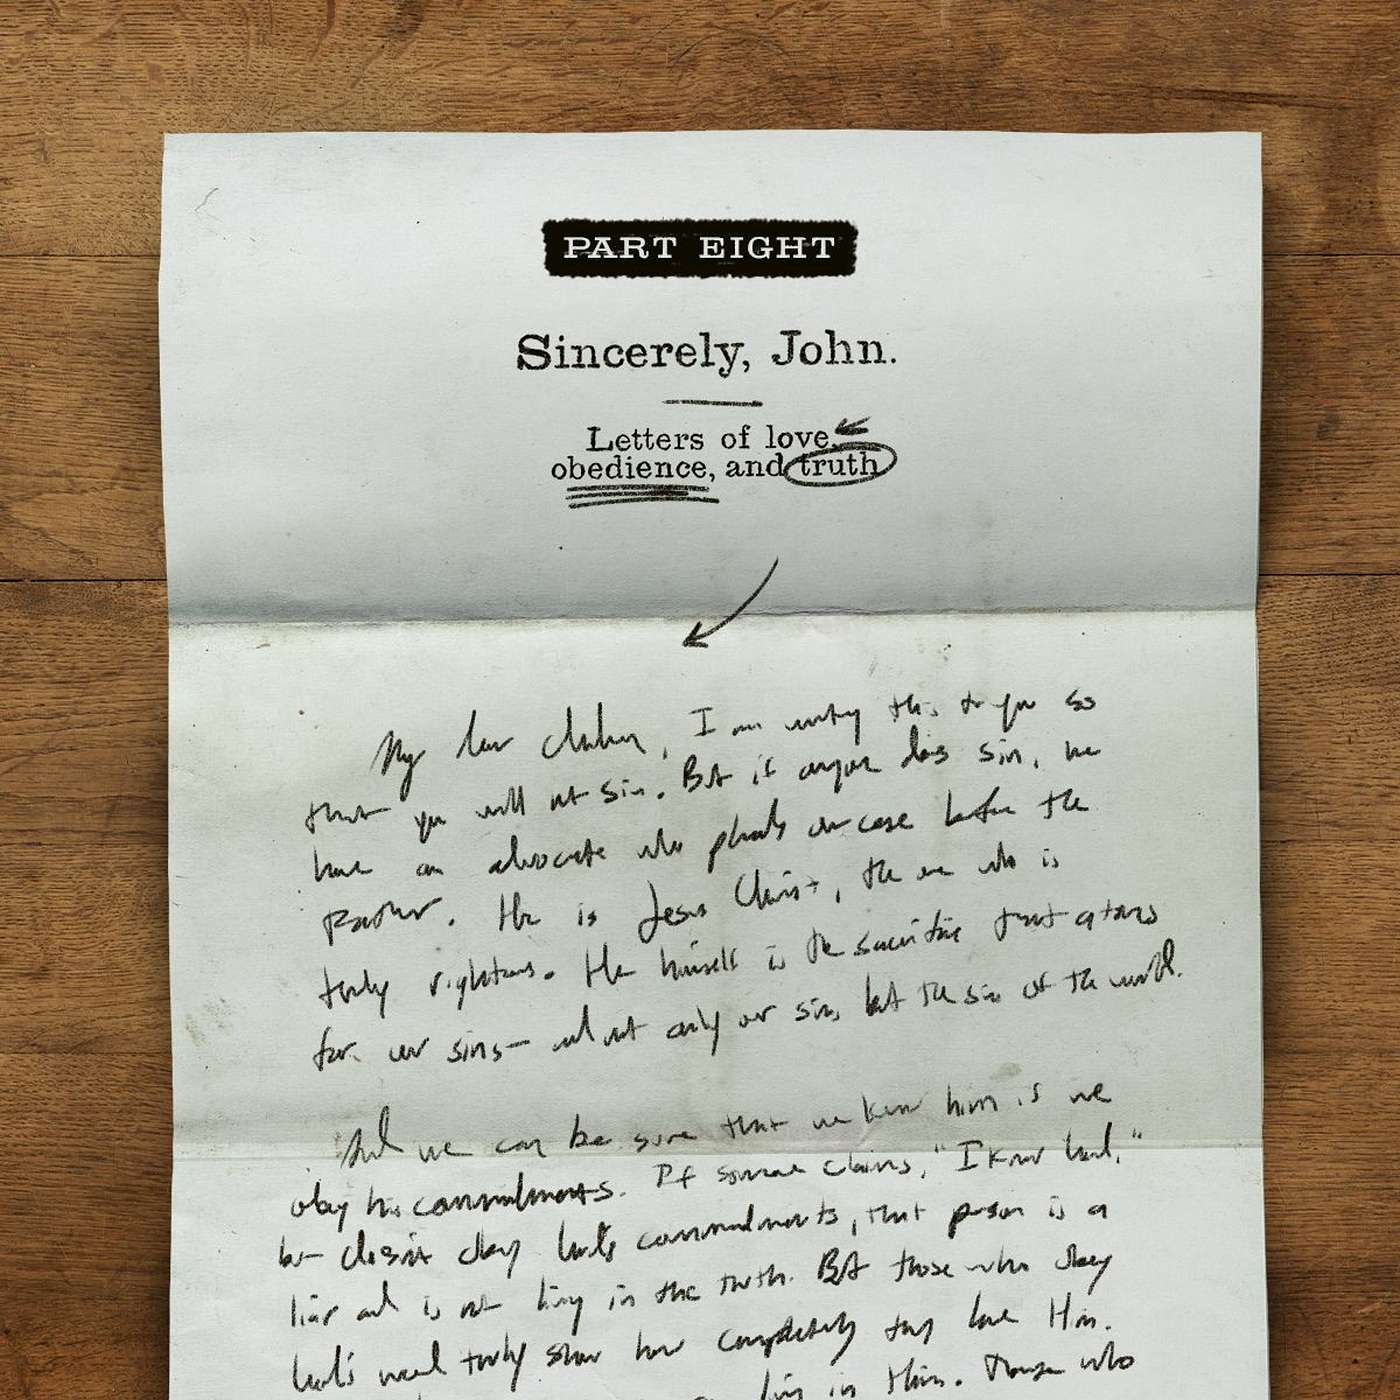 PART EIGHT
Sincerely, John.
Letters of love,
obedience, and truth
My dear children, I am writing this to you so
that you will not sin. But if anyone does sin, we
have an advocate who pleads our case before the
Father. He is Jesus Christ, the one who is
truly righteous. He himself is the sacrifice that atones
for our sins— and not only our sins but the sins of the world.
And we can be sure that we know him if we
obey his commandments. If someone claims, "I know God,"
but doesn't obey God's commandments, that person is a
liar and is not living in the truth. But those who obey
God's word truly show how completely they love Him.
live in Him. Those who